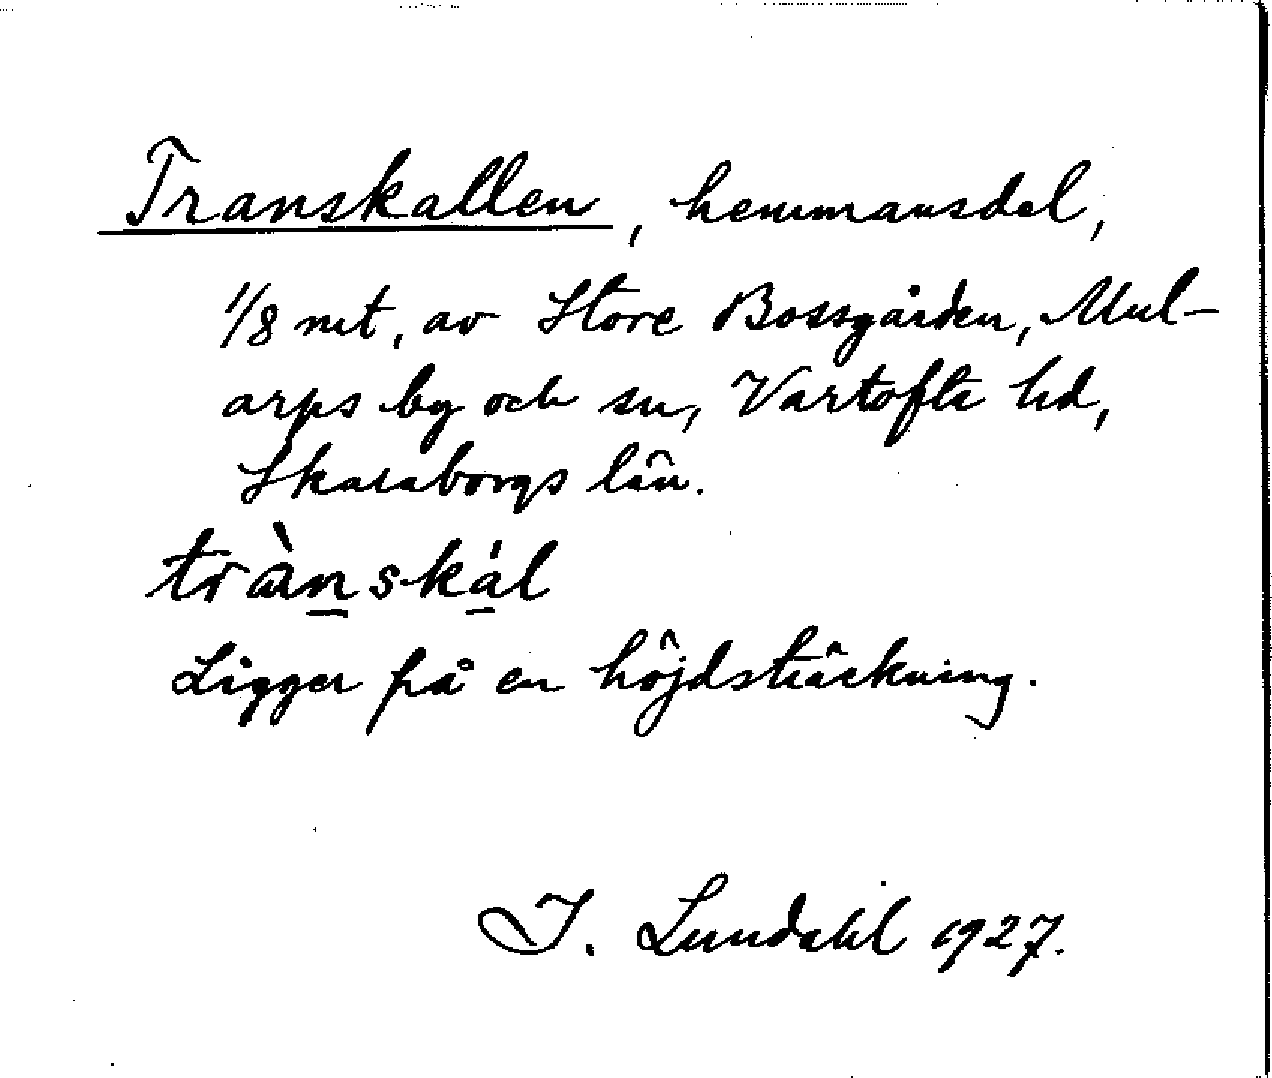 Transkallen, hemmansdel,
1/8 mt, av Store Bossgården, Mul-
arps by och sn, Vartofta hd,
Skaraborgs län.
trànskál
Ligger på en höjdsträckning.
I. Lundahl 1927.